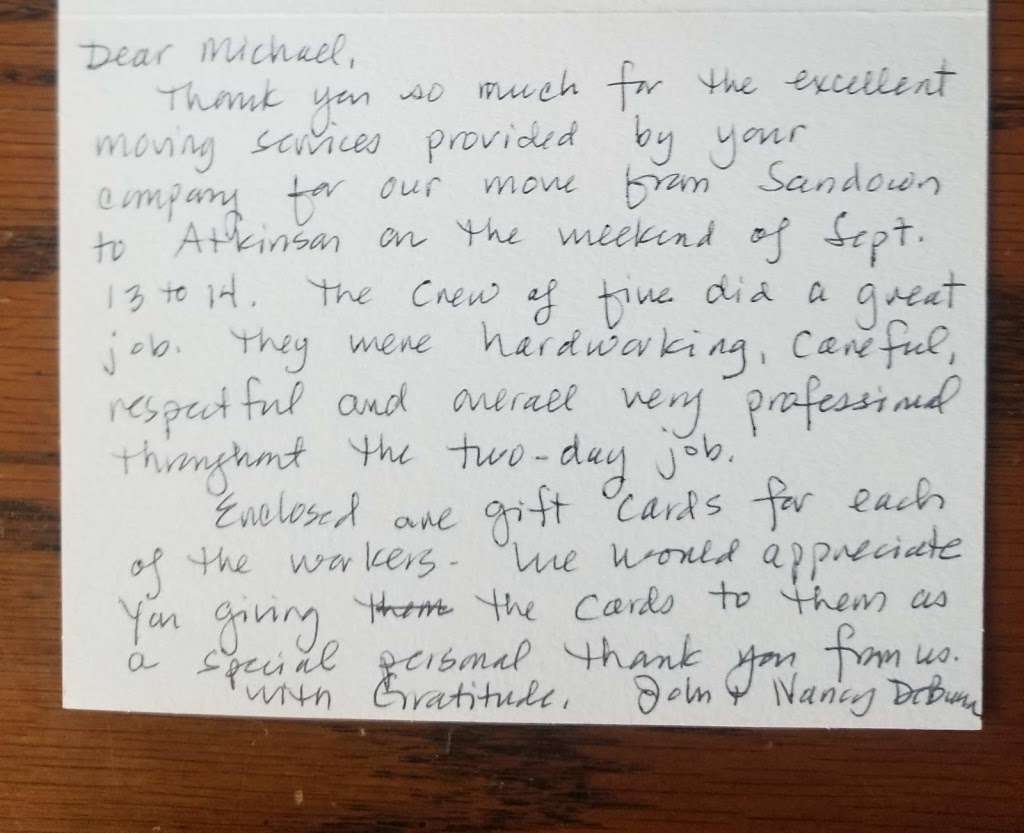 Dear Michael,
Thank you so much for the excellent
moving services provided by your
company for our move from Sandown
to Atkinson on the weekend of Sept.
13 to 14. The crew of five did a great
job. They were hardworking, careful,
respectful and overall very professional
throughout the two-day job.
Enclosed are gift cards for each
of the workers. We would appreciate
you giving them the cards to them as
a special personal thank you from us.
With Gratitude, John & Nancy